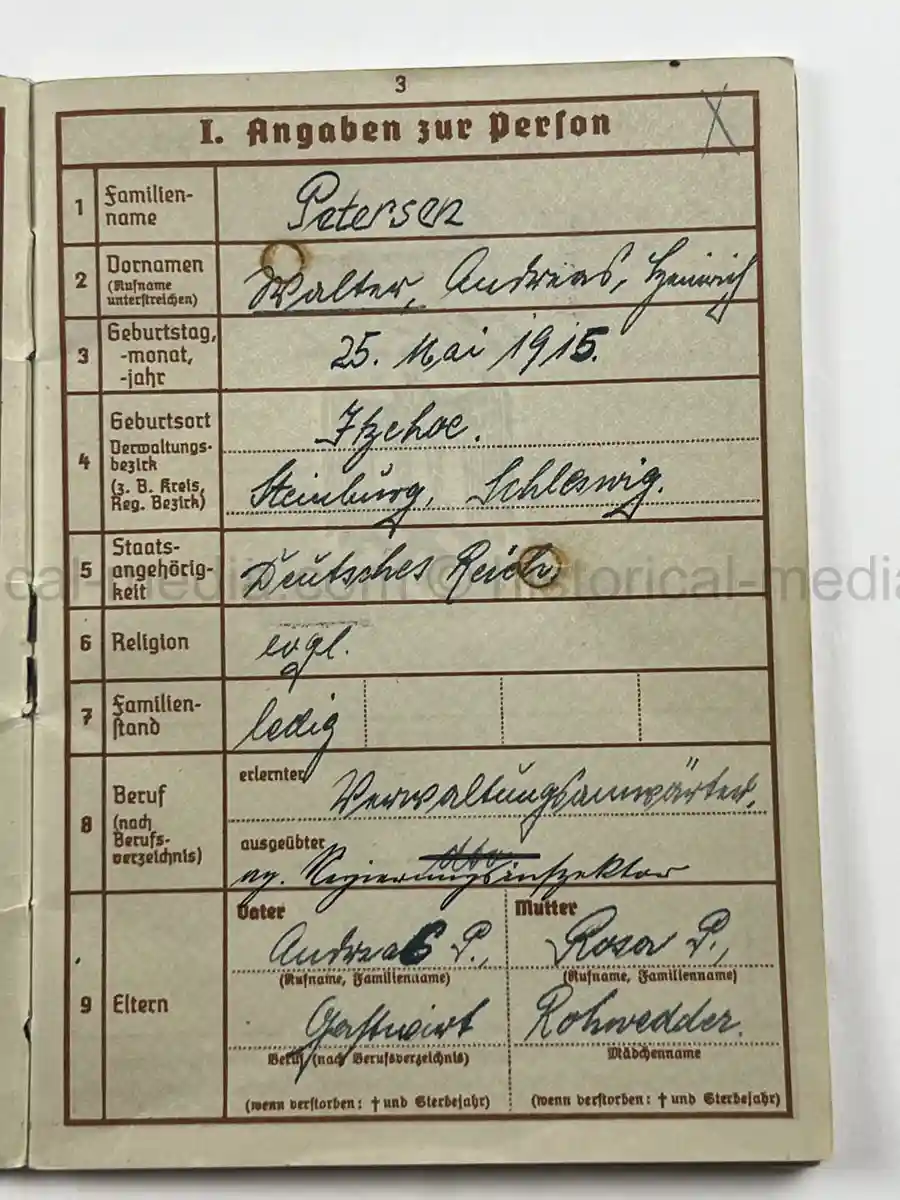 3
I. Angaben zur Person
1 Familien-
name
Petersen
2 Vornamen
(Rufname
unterstreichen)
Walter, Andreas, Heinrich
3 Geburtstag,
-monat,
-jahr
25. Mai 1915.
4 Geburtsort
Verwaltungs-
bezirk
(z. B. Kreis,
Reg. Bezirk)
Itzehoe.
Steinburg, Schleswig.
5 Staats-
angehörig-
keit
Deutsches Reich
cal-media.com © historical-media
6 Religion
evgl.
7 Familien-
stand
ledig
8 Beruf
(nach
Berufs-
verzeichnis)
erlernter
Verwaltungsanwärter,
ausgeübter
Regierungsinspektor
9 Eltern
Vater
Andreas P.,
(Rufname, Familienname)
Gastwirt
Beruf (nach Berufsverzeichnis)
(wenn verstorben: † und Sterbejahr)
Mutter
Rosa P.,
(Rufname, Familienname)
Rohwedder.
Mädchenname
(wenn verstorben: † und Sterbejahr)